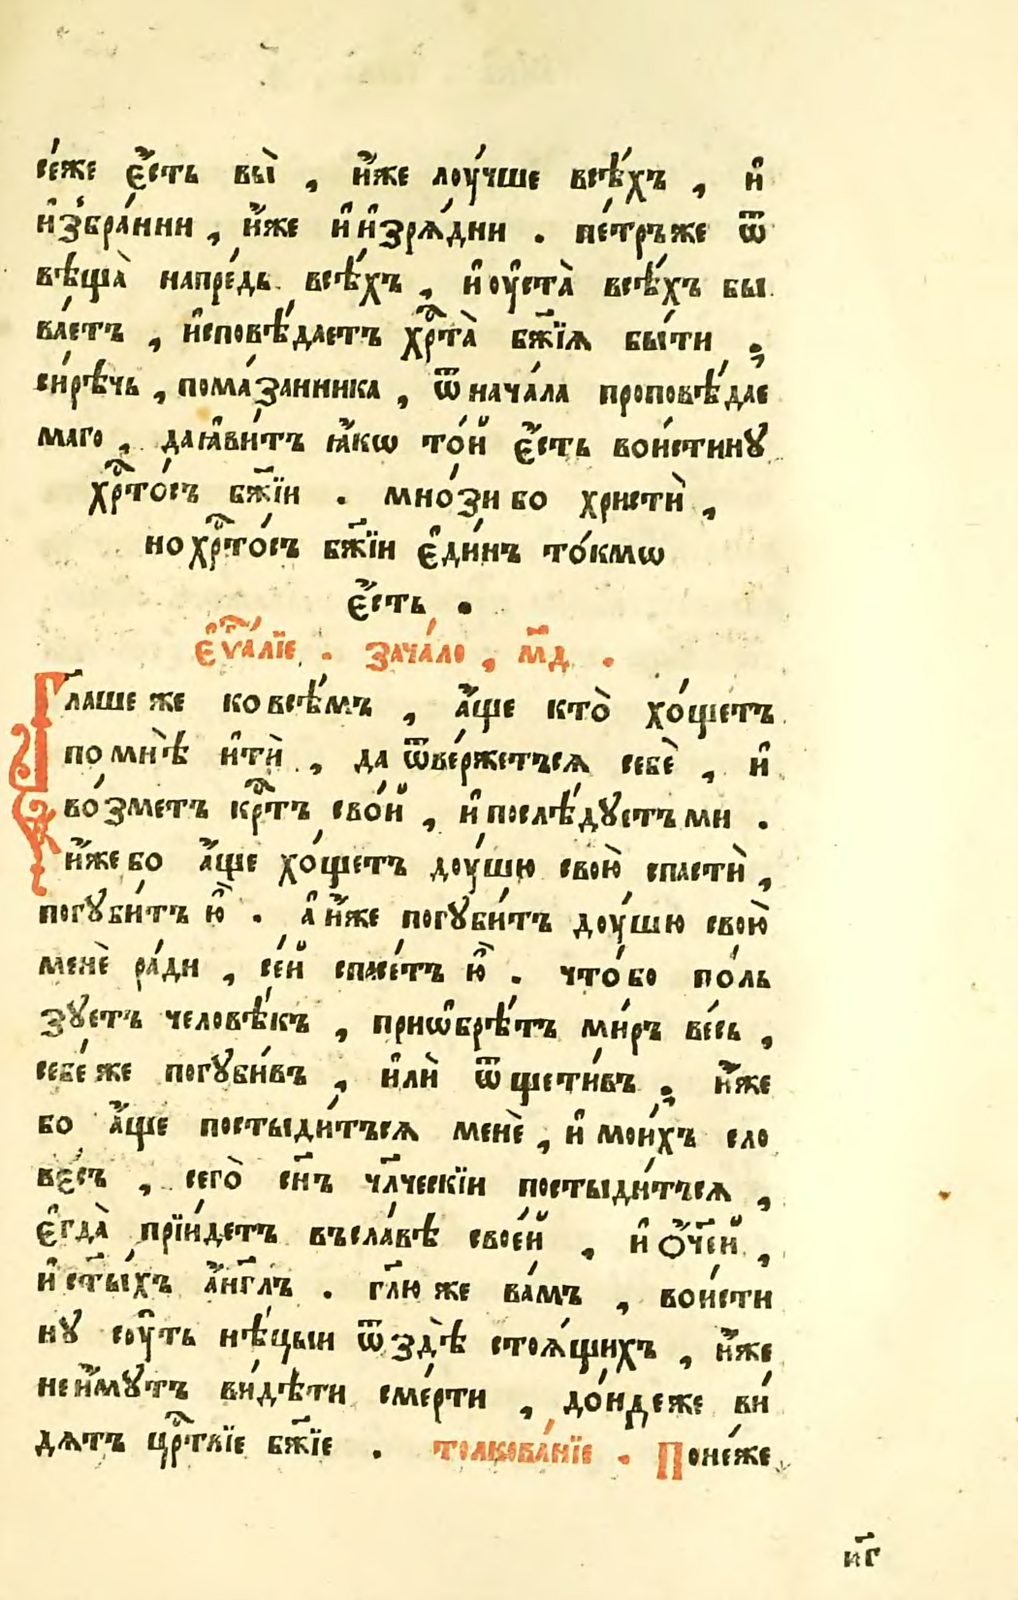 се́же є҆́сть вы̀ , и҆́же лоу́чше всѣ́хъ , и҆
и҆з̾бра́нни , и҆́же и҆ и҆зрѧ́дни . пе́тръже ѿ
вѣща̀ напре́дь всѣ́хъ , и҆ оу҆ста̀ всѣ́хъ бы
ва́етъ , и҆сповѣ́даетъ хрⷭ҇та̀ бж҃їѧ бы́ти ,
си́рѣчь , пома́занника , ѿ нача́ла проповѣ́дае
маго , даꙗ҆ви́тъ ꙗ҆́кѡ то́й є҆́сть вои́стинꙋ
хрⷭ҇то́съ бж҃їи . мно́зи бо христѝ ,
но хрⷭ҇то́съ бж҃їи є҆ди́нъ то́кмѡ
є҆́сть .
є҆ѵⷢ҇а́лїе . зача́ло , л҃д .
Гл҃аше же ко всѣ́мъ , а҆́ще кто̀ хо́щетъ
по мнѣ̀ и҆тѝ , да ѿве́ржетъсѧ себѐ , и҆
во́зметъ крⷭ҇тъ сво́й , и҆ послѣ́дꙋетъ ми .
и҆́же бо а҆́ще хо́щетъ доу́шю свою̀ спастѝ ,
погꙋби́тъ ю҆̀ . а҆ и҆́же погꙋби́тъ доу́шю свою̀
менѐ ра́ди , се́й спасе́тъ ю҆̀ . что́ бо по́ль
зꙋетъ человѣ́къ , приѡ҆брѣ́тъ ми́ръ ве́сь ,
себе́ же погꙋби́въ , и҆лѝ ѿщети́въ , и҆́же
бо а҆́ще постыди́тъсѧ менѐ , и҆ мои́хъ сло
ве́съ , сего̀ сн҃ъ чл҃ческїи постыди́тъсѧ ,
є҆гда̀ прїи́детъ въсла́вѣ свое́й , и҆ ѻ҆́ч҃ей ,
и҆ ст҃ы́хъ а҆́нгл҃ъ . гл҃ю же ва́мъ , вои́сти
нꙋ соу҆́ть нѣ́цыи ѿ здѣ̀ стоѧ́щихъ , и҆́же
не и҆́мꙋтъ ви́дѣти сме́рти , до́ндеже ви́
дѧтъ црⷭ҇твїе бж҃їе . толкова́нїе . Поне́же
н҃г